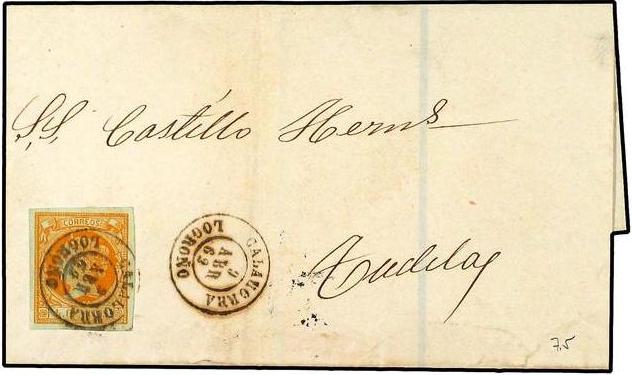 SS. Castillo Herms
CORREOS
CALAHORRA
2
ABR
63
LOGROÑO
CALAHORRA
ABR
LOGROÑO
Tudela
7,5